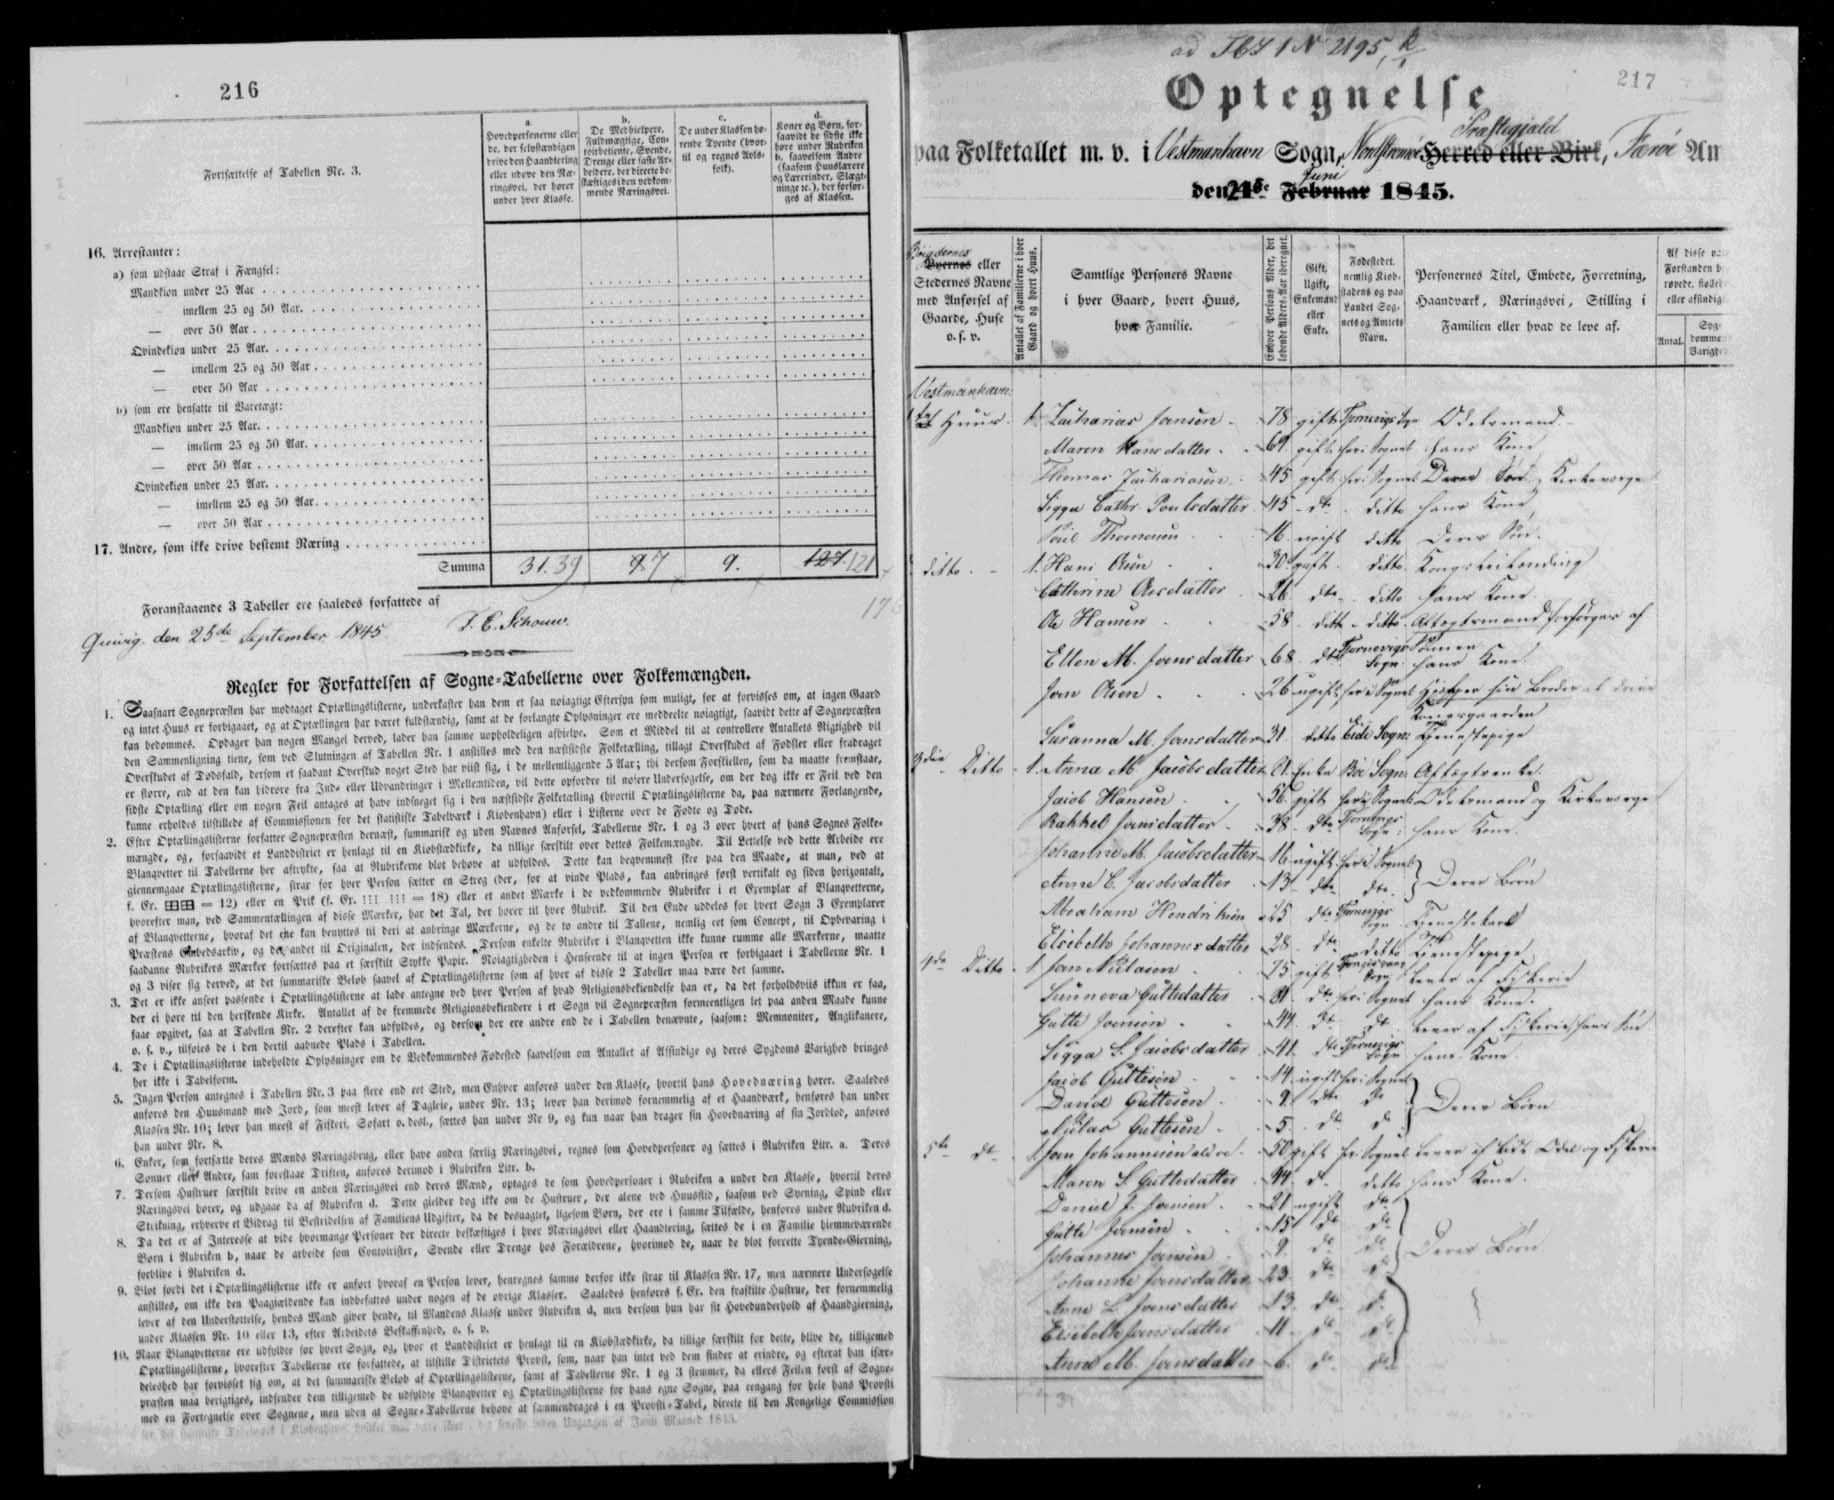 216
Fortsættelse af Tabellen Nr. 3.
a.
Hovedpersonerne eller
de, der selvstændigen
drive den Haandtering
eller udøve den Næ-
ringsvei, der hører
under hver Klasse.
b.
De Medhielpere,
Fuldmægtige, Con-
toirbetiente, Svende,
Drenge eller faste Ar-
beidere, der directe be-
skæftiges i den vedkom-
mende Næringsvei.
c.
De under Klassen hø-
rende Tyende (hvor-
til og regnes Avls-
folk).
d.
Koner og Børn, for-
saavidt de sidste ikke
høre under Rubriken
b, saavelsom Andre
(saasom Huuslærere
og Lærerinder, Slægt-
ninge ic.), der forsør-
ges af Klassen.
16. Arrestanter:
a) som udstaae Straf i Fængsel:
Mandkiøn under 25 Aar
— imellem 25 og 50 Aar
— over 50 Aar
Qvindekiøn under 25 Aar
— imellem 25 og 50 Aar
— over 50 Aar
b) som ere hensatte til Varetægt:
Mandkiøn under 25 Aar
— imellem 25 og 50 Aar
— over 50 Aar
Qvindekiøn under 25 Aar
— imellem 25 og 50 Aar
— over 50 Aar
17. Andre, som ikke drive bestemt Næring
Summa 31. 39 9. 7 9. 127. 121
Foranstaaende 3 Tabeller ere saaledes forfattede af
Quivig. den 25de September 1845 F. E. Schouw.
Regler for Forfattelsen af Sogne-Tabellerne over Folkemængden.
1. Saasnart Sognepræsten har modtaget Optællingslisterne, underkaster han dem et saa nøiagtigt Eftersyn som muligt, for at forvisses om, at ingen Gaard
og intet Huus er forbigaaet, og at Optællingen har været fuldstændig, samt at de forlangte Oplysninger ere meddeelte nøiagtigt, saavidt dette af Sognepræsten
kan bedømmes. Opdager han nogen Mangel derved, lader han samme uopholdeligen afhielpe. Som et Middel til at controllere Antallets Rigtighed vil
den Sammenligning tiene, som ved Slutningen af Tabellen Nr. 1 anstilles med den næstsidste Folketælling, tillagt Overskudet af Fødsler eller fradraget
Overskudet af Dødsfald, dersom et saadant Overskud noget Sted har viist sig, i de mellemliggende 5 Aar; thi dersom Forskiellen, som da maatte fremstaae,
er større, end at den kan hidrøre fra Ind- eller Udvandringer i Mellemtiden, vil dette opfordre til nøiere Undersøgelse, om der dog ikke er Feil ved den
sidste Optælling eller om nogen Feil antages at have indsneget sig i den næstsidste Folketælling (hvortil Optællingslisterne da, paa nærmere Forlangende,
kunne erholdes tilstillede af Commissionen for det statistiske Tabelværk i Kiøbenhavn) eller i Listerne over de Fødte og Døde.
2. Efter Optællingslisterne forfatter Sognepræsten dernæst, summarisk og uden Navnes Anførsel, Tabellerne Nr. 1 og 3 over hvert af hans Sognes Folke-
mængde, og, forsaavidt et Landdistrict er henlagt til en Kiøbstædkirke, da tillige særskilt over dettes Folkemængde. Til Lettelse ved dette Arbeide ere
Blanqvetter til Tabellerne her aftrykte, saa at Rubrikerne blot behøve at udfyldes. Dette kan beqvemmest skee paa den Maade, at man, ved at
giennemgaae Optællingslisterne, strax for hver Person sætter en Streg (der, for at vinde Plads, kan anbringes først vertikalt og siden horizontalt,
f. Ex. ⊞⊞ = 12) eller en Prik (f. Ex. ⋮⋮⋮ ⋮⋮⋮ = 18) eller et andet Mærke i de vedkommende Rubriker i et Exemplar af Blanqvetterne,
hvorefter man, ved Sammentællingen af disse Mærker, har det Tal, der hører til hver Rubrik. Til den Ende uddeles for hvert Sogn 3 Exemplarer
af Blanqvetterne, hvoraf det ene kan benyttes til deri at anbringe Mærkerne, og de to andre til Tallene, nemlig eet som Concept, til Opbevaring i
Præstens Embedsarkiv, og det andet til Originalen, der indsendes. Dersom enkelte Rubriker i Blanqvetten ikke kunne rumme alle Mærkerne, maatte
saadanne Rubrikers Mærker fortsættes paa et særskilt Stykke Papir. Nøiagtigheden i Henseende til at ingen Person er forbigaaet i Tabellerne Nr. 1
og 3 viser sig derved, at det summariske Beløb saavel af Optællingslisterne som af hver af disse 2 Tabeller maa være det samme.
3. Det er ikke anseet passende i Optællingslisterne at lade antegne ved hver Person af hvad Religionsbekiendelse han er, da det forholdsviis ikkun er faa,
der ei høre til den herskende Kirke. Antallet af de fremmede Religionsbekiendere i et Sogn vil Sognepræsten formeentligen let paa anden Maade kunne
faae opgivet, saa at Tabellen Nr. 2 derefter kan udfyldes, og dersom der ere andre end de i Tabellen benævnte, saasom: Memnoniter, Anglikanere,
o. s. v., tilføies de i den dertil aabnede Plads i Tabellen.
4. De i Optællingslisterne indeholdte Oplysninger om de Vedkommendes Fødested saavelsom om Antallet af Affindige og deres Sygdoms Varighed bringes
her ikke i Tabelform.
5. Ingen Person antegnes i Tabellen Nr. 3 paa flere end eet Sted, men Enhver anføres under den Klasse, hvortil hans Hovednæring hører. Saaledes
anføres den Huusmand med Jord, som meest lever af Dagleie, under Nr. 13; lever han derimod fornemmelig af et Haandværk, henføres han under
Klassen Nr. 10; lever han meest af Fiskeri, Søfart o. desl., sættes han under Nr 9, og kun naar han drager sin Hovednæring af sin Jordlod, anføres
han under Nr. 8.
6. Enker, som fortsætte deres Mænds Næringsbrug, eller have anden særlig Næringsvei, regnes som Hovedpersoner og sættes i Rubriken Litr. a. Deres
Sønner eller Andre, sam forestaae Driften, anføres derimod i Rubriken Litr. b.
7. Dersom Hustruer særskilt drive en anden Næringsvei end deres Mænd, optages de som Hovedpersoner i Rubriken a under den Klasse, hvortil deres
Næringsvei hører, og udgaae da af Rubriken d. Dette gielder dog ikke om de Hustruer, der alene ved Huusflid, saasom ved Syening, Spind eller
Strikning, erhverve et Bidrag til Bestridelsen af Familiens Udgifter, da de desuagtet, ligesom Børn, der ere i samme Tilfælde, henføres under Rubriken d.
8. Da det er af Interesse at vide hvormange Personer der directe beskæftiges i hver Næringsvei eller Haandtering, sættes de i en Familie hiemmeværende
Børn i Rubriken b, naar de arbeide som Contoirister, Svende eller Drenge hos Forældrene, hvorimod de, naar de blot forrette Tyende-Gierning,
forblive i Rubriken d.
9. Blot fordi det i Optællingslisterne ikke er anført hvoraf en Person lever, henregnes samme derfor ikke strax til Klassen Nr. 17, men nærmere Undersøgelse
anstilles, om ikke den Paagiældende kan indbefattes under nogen af de øvrige Klasser. Saaledes henføres f. Ex. den fraskilte Hustrue, der fornemmelig
lever af den Understøttelse, hendes Mand giver hende, til Mandens Klasse under Rubriken d, men dersom hun har sit Hovedunderhold af Haandgierning,
under Klassen Nr. 10 eller 13, efter Arbeidets Beskaffenhed, o. s. v.
10. Naar Blanqvetterne ere udfyldte for hvert Sogn, og, hvor et Landdistrict er henlagt til en Kiøbstædkirke, da tillige særskilt for dette, blive de, tilligemed
Optællingslisterne, hvorefter Tabellerne ere forfattede, at tilstille Districtets Provst, som, naar han intet ved dem finder at erindre, og efterat han især-
deleshed har forvisset sig om, at det summariske Beløb af Optællingslisterne, samt af Tabellerne Nr. 1 og 3 stemmer, da ellers Feilen først af Sogne-
præsten maa berigtiges, indsender dem tilligemed de udfyldte Blanqvetter og Optællingslisterne for hans egne Sogne, paa eengang for hele hans Provsti
med en Fortegnelse over Sognene, men uden at Sogne-Tabellerne behøve at sammendrages i en Provsti-Tabel, directe til den Kongelige Commission
ad N 2195,
217
Optegnelse
paa Folketallet m. v. i Vestmanhavn Sogn, Nordstrømø Herred eller Birk, Færø Am
Præstegjæld
den 24de Februar 1845.
Juni
Bøigdernes
Byernes eller
Stedernes Navne
med Anførsel af
Gaarde, Huse
o. s. v.
Antallet af Familierne i hver
Gaard og hvert Huus.
Samtlige Personers Navne
i hver Gaard, hvert Huus,
hver Familie.
Enhver Persons Alder, det
løbende Alders-Aar iberegnet.
Gift,
Ugift,
Enkemand
eller
Enke.
Fødestedet,
nemlig Kiøb-
stadens og paa
Landet Sog-
nets og Amtets
Navn.
Personernes Titel, Embede, Forretning,
Haandværk, Næringsvei, Stilling i
Familien eller hvad de leve af.
Af disse
Forstanden
røvede,
eller afsindige
Antal.
Syg-
dommens
Varighed
Vestmanhavn:
1ste Huus. 1. Zacharias Jansen 78 gift Tjørnevigs Sogn Odelsmand
Maren Hansdatter 69 gift her i Sognet hans Kone
Thomas Zachariasen 45 gift her i Sognet Deres Søn, Kirkeværge
Sigga Cathr. Poulsdatter 45 dto ditto hans Kone
Poul Thomasen 16 ugift ditto Deres Søn
ditto 1. Hans Olsen 30 gift ditto Kongsleilænding
Cathrine Olesdatter 26 dto ditto hans Kone
Ole Hansen 58 ditto ditto Aftægtsmand forsørges af
Sønnen
Ellen M. Joensdatter 68 dto Tjørnevigs Sogn hans Kone
Joen Olsen 26 ugift her i Sognet Hjelper sin Broder at drive
Kongsgaarden
Susanna M. Jansdatter 31 ditto Eide Sogn Tjenestepige
3die Ditto 1. Anna M. Jacobsdatter Enke Aftægtsenke
Jacob Hansen 56 gift her i Sognet Odelsmand og Kirkeværge
Rakkel Joensdatter 38 dto Tjørnevigs Sogn hans Kone
Johanne M. Jacobsdatter 16 ugift her i Sognet
Anne C. Jacobsdatter 13 dto dto Deres Børn
Abraham Hendriksen 25 dto Tjørnevigs Sogn Tjenestekarl
Elsebeth Johannesdatter 28 dto ditto Tjenestepige
4de Ditto 1. Jan Nielasen 75 gift Sogn lever af Fiskerie
Sunneva Guttesdatter 81 dto her i Sognet hans Kone
Gutte Joensen 44 dto dto lever af Fiskerie, hans Søn
Sigga S. Jacobsdatter 41 dto Tjørnevigs Sogn hans Kone
Jacob Guttesen 14 ugift her i Sognet
David Guttesen 9 dto do Deres Børn
Niclas Guttesen 5 do do
5te dto 1. Joen Johannesen ældre 50 gift her i Sognet lever af lidt Odel og Fiskerie
Maren S. Guttesdatter 44 do ditto hans Kone
Daniel J. Joensen 21 ugift dto
Gutte Joensen 15 do do
Johannes Joensen 9 do do Deres Børn
Johanne Joensdatter 23 dto do
Anne L. Joensdatter 13 do do
Elsebeth Joensdatter 11 do do
Anne M. Joensdatter 6 do do